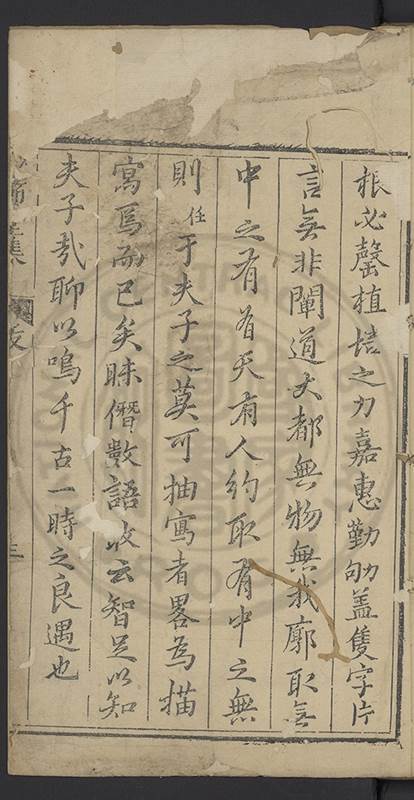 根必罄植培之力嘉惠勤劬盖隻字片
言無非闡道大都無物無我廓取無
中之有有天有人約取有中之無
則任于夫子之莫可抽寫者畧為描
寫焉而已矣昧僭數語敢云智足以知
夫子哉聊以鳴千古一時之良遇也
集 三